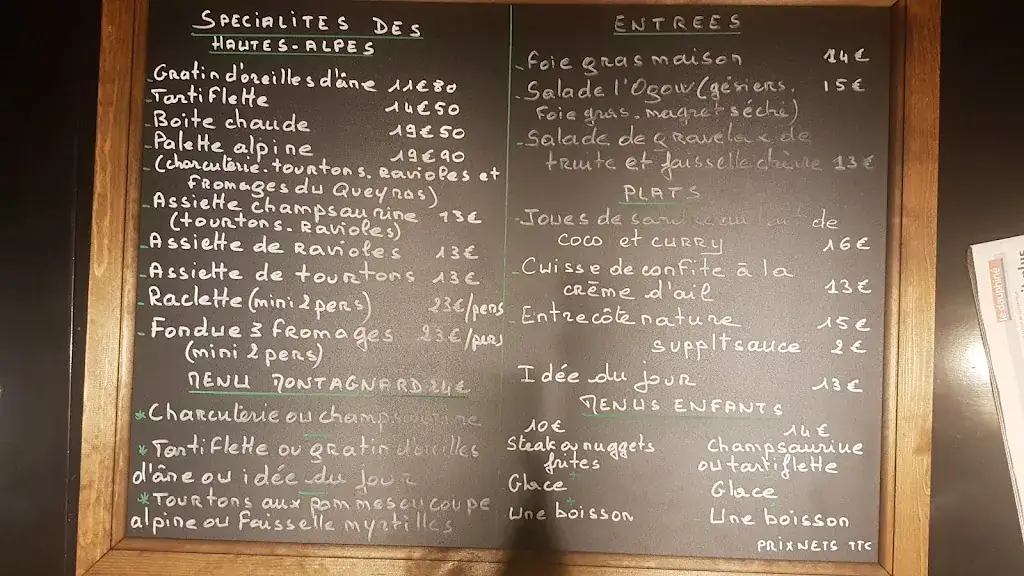 SPECIALITES DES
HAUTES-ALPES
-Gratin d'oreilles d'âne 11€80
-Tartiflette 14€50
-Boite chaude 19€50
-Palette alpine 19€90
-(charcuterie.tourtons.Ravioles et
fromages du Queyras)
-Assiette champsaurine 13€
(tourtons.Ravioles)
-Assiette de Ravioles 13€
-Assiette de tourtons 13€
-Raclette (mini 2 pers) 23€/pers
-Fondue 3 fromages 23€/pers
(mini 2 pers)
MENU MONTAGNARD 24€
*Charcuterie ou champsaurine
*Tartiflette ou gratin d'oreilles
d'âne ou idée du jour
*Tourtons aux pommes ou coupe
alpine ou faisselle myrtilles
ENTREES
-Foie gras maison 14€
-Salade l'Ogow (gésiers. 15€
Foie gras. magret séché)
-Salade de gravelax de
truite et faisselle 13€
PLATS
-Joues de de
coco et curry 16€
-Cuisse de confite à la
crème d'ail 13€
-Entrecôte nature 15€
suppltsauce 2€
Idée du jour 13€
MENUS ENFANTS
10€ 14€
Steak ou nuggets Champsaurine
frites ou tartiflette
Glace Glace
Une boisson Une boisson
PRIX NETS TTC